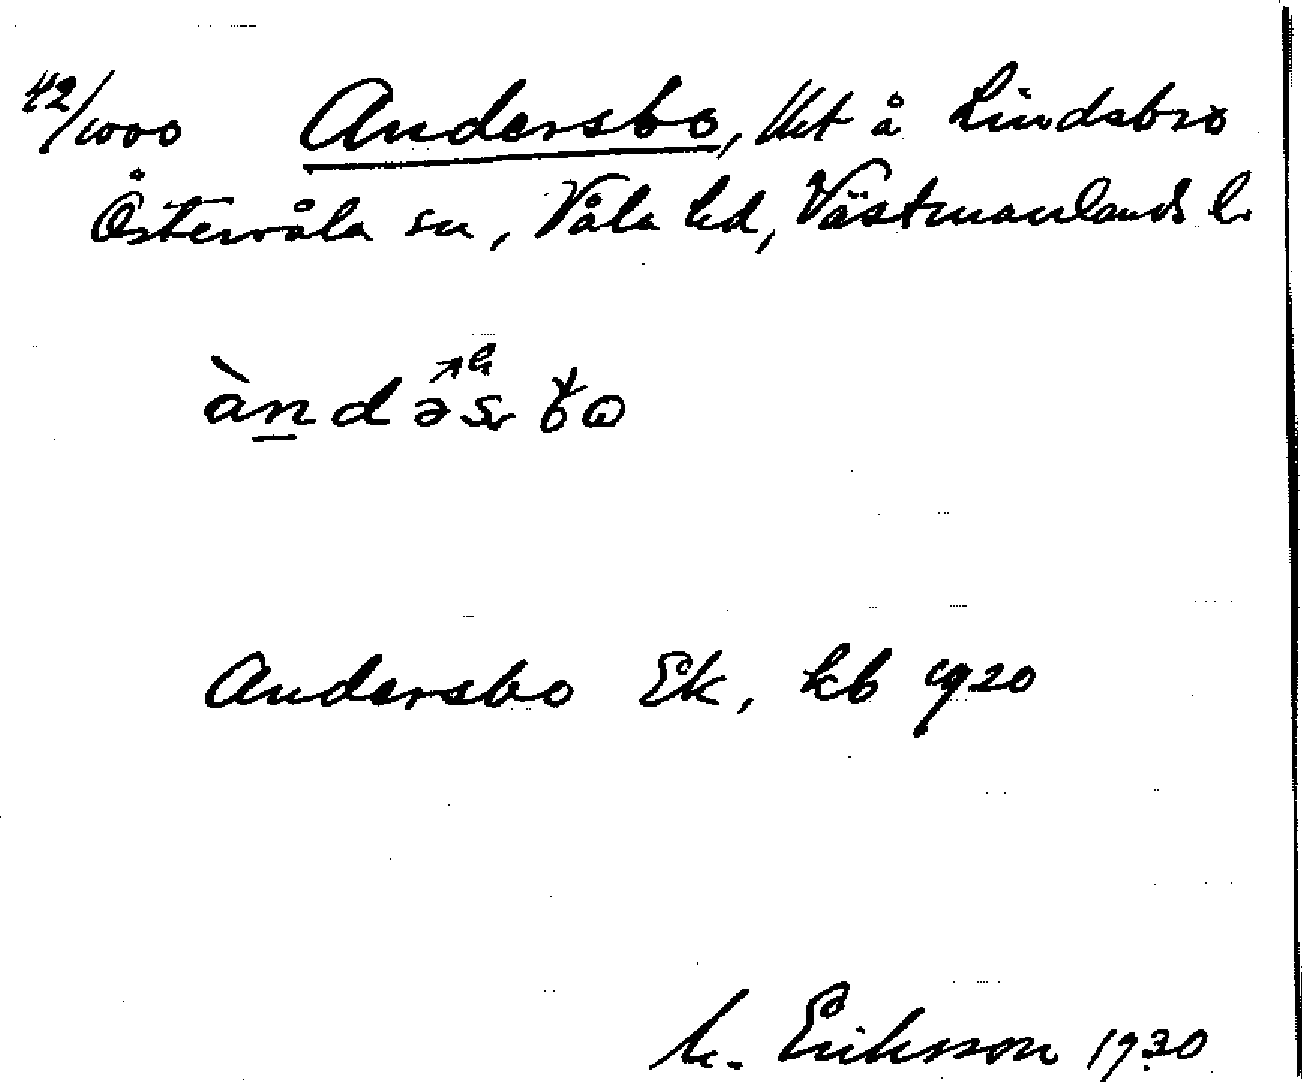 42/1000 Andersbo, lht å Lindsbro
Östervåla sn, Våla hd, Västmanlands l.
àndəs bo
Andersbo Ek, kb 1920
M. Eriksson 1930